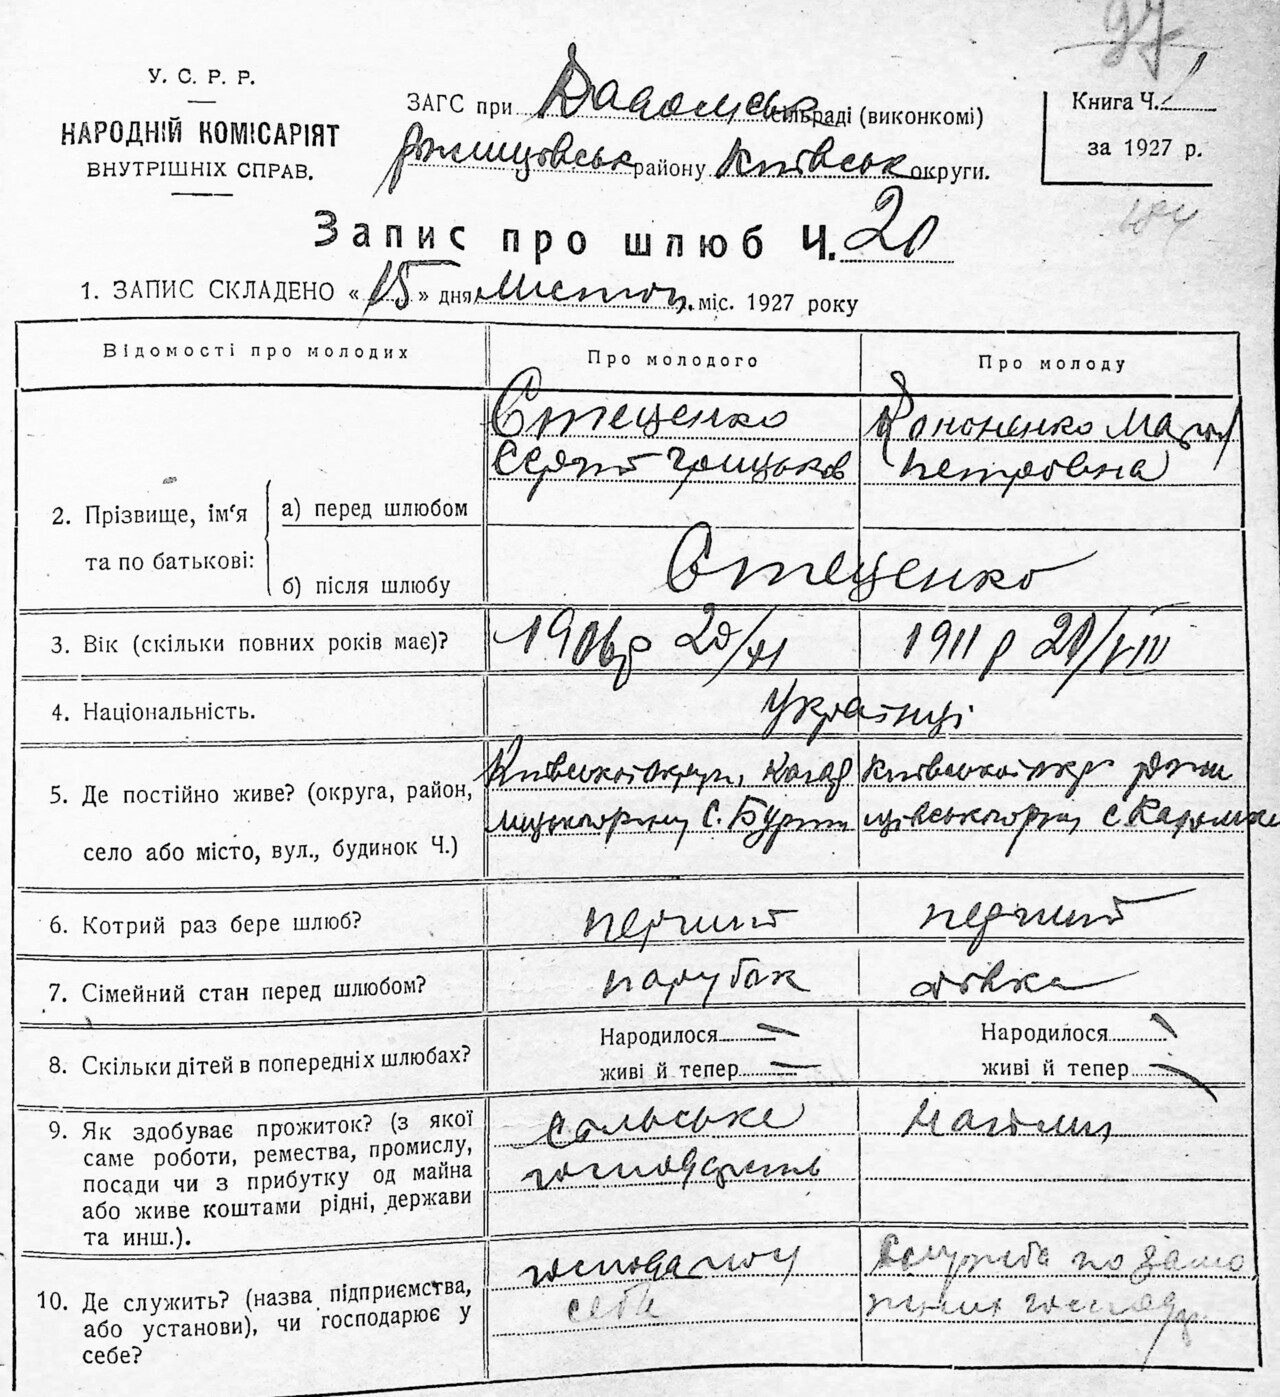 97
У. С. Р. Р.
НАРОДНІЙ КОМІСАРІЯТ
ВНУТРІШНІХ СПРАВ.
ЗАГС при сільраді (виконкомі)
Ржищівськ району Київськ округи.
Книга Ч. 1
за 1927 р.
Запис про шлюб Ч. 20
1. ЗАПИС СКЛАДЕНО « 15 » дня Листоп. міс. 1927 року
Відомості про молодих
Про молодого
Про молоду
2. Прізвище, ім'я та по батькові:
а) перед шлюбом
Стеценко
Сергій Грицьков
Кононенко Марія
Петровна
б) після шлюбу
Стеценко
3. Вік (скільки повних років має)?
1906 р 20/
1911 р 20/VIII
4. Національність.
Українці
5. Де постійно живе? (округа, район,
село або місто, вул., будинок Ч.)
Київської округи Кагар
лицького району с.
Київської окр Ржи
щівського району с.
6. Котрий раз бере шлюб?
перший
перший
7. Сімейний стан перед шлюбом?
парубок
дівка
8. Скільки дітей в попередніх шлюбах?
Народилося —
живі й тепер —
Народилося —
живі й тепер —
9. Як здобуває прожиток? (з якої
саме роботи, ремества, промислу,
посади чи з прибутку од майна
або живе коштами рідні, держави
та инш.).
Сільське
господарств
10. Де служить? (назва підприємства,
або установи), чи господарює у
себе?
господарює у
себе
Служба по замо
жних господар